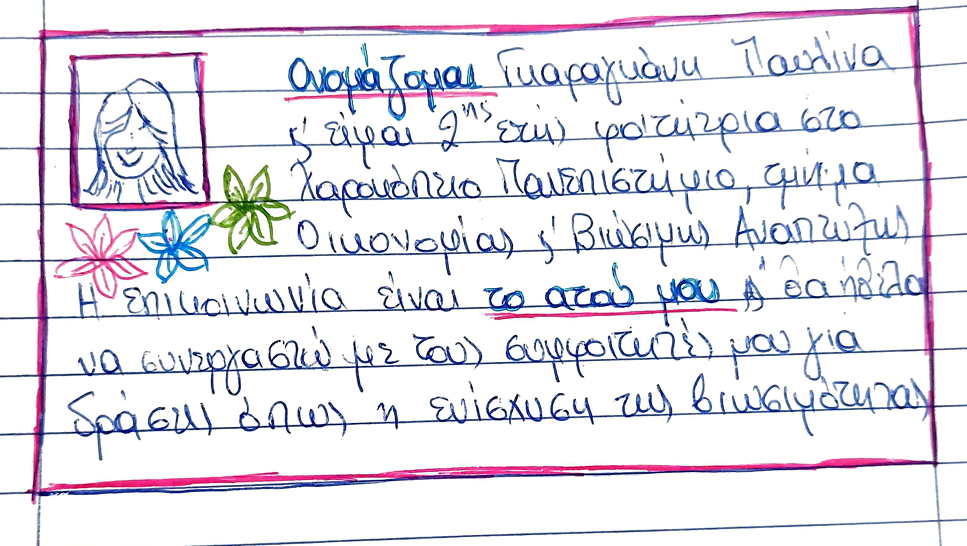 Ονομάζομαι Γκαραγκάνη Παυλίνα
ϗ' είμαι 2ης έτης φοιτήτρια στο
Χαροκόπειο Πανεπιστήμιο, τμήμα
Οικονομίας ϗ' Βιώσιμης Ανάπτυξης
Η επικοινωνία είναι το ατού μου ϗ' θα ήθελα
να συνεργαστώ με τους συμφοιτητές μου για
δράσεις όπως η ενίσχυση της βιωσιμότητας